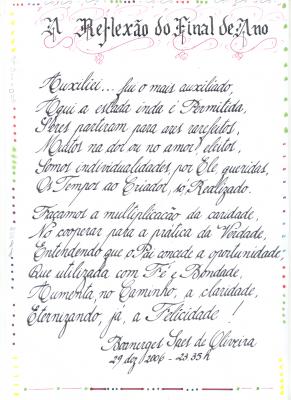 A Reflexão do Final de Ano
Auxiliei... fui o mais auxiliado,
Aqui a estada inda é Permitida,
Seres partiram para ares rarefatos,
Muitos na dor ou no amor! eleitos,
Somos individualidades, por Ele, queridas,
Os Tempos ao Criador, só, Realizado.
Façamos a multiplicação da caridade,
No cooperar para a prática da Verdade,
Entendendo que o Pai concede a oportunidade,
Que utilizada com Fé e Bondade,
Aumenta, no Caminho, a claridade,
Eternizando, já, a Felicidade !
Boanerges Saes de Oliveira
29 dez 2006 - 23:35 h